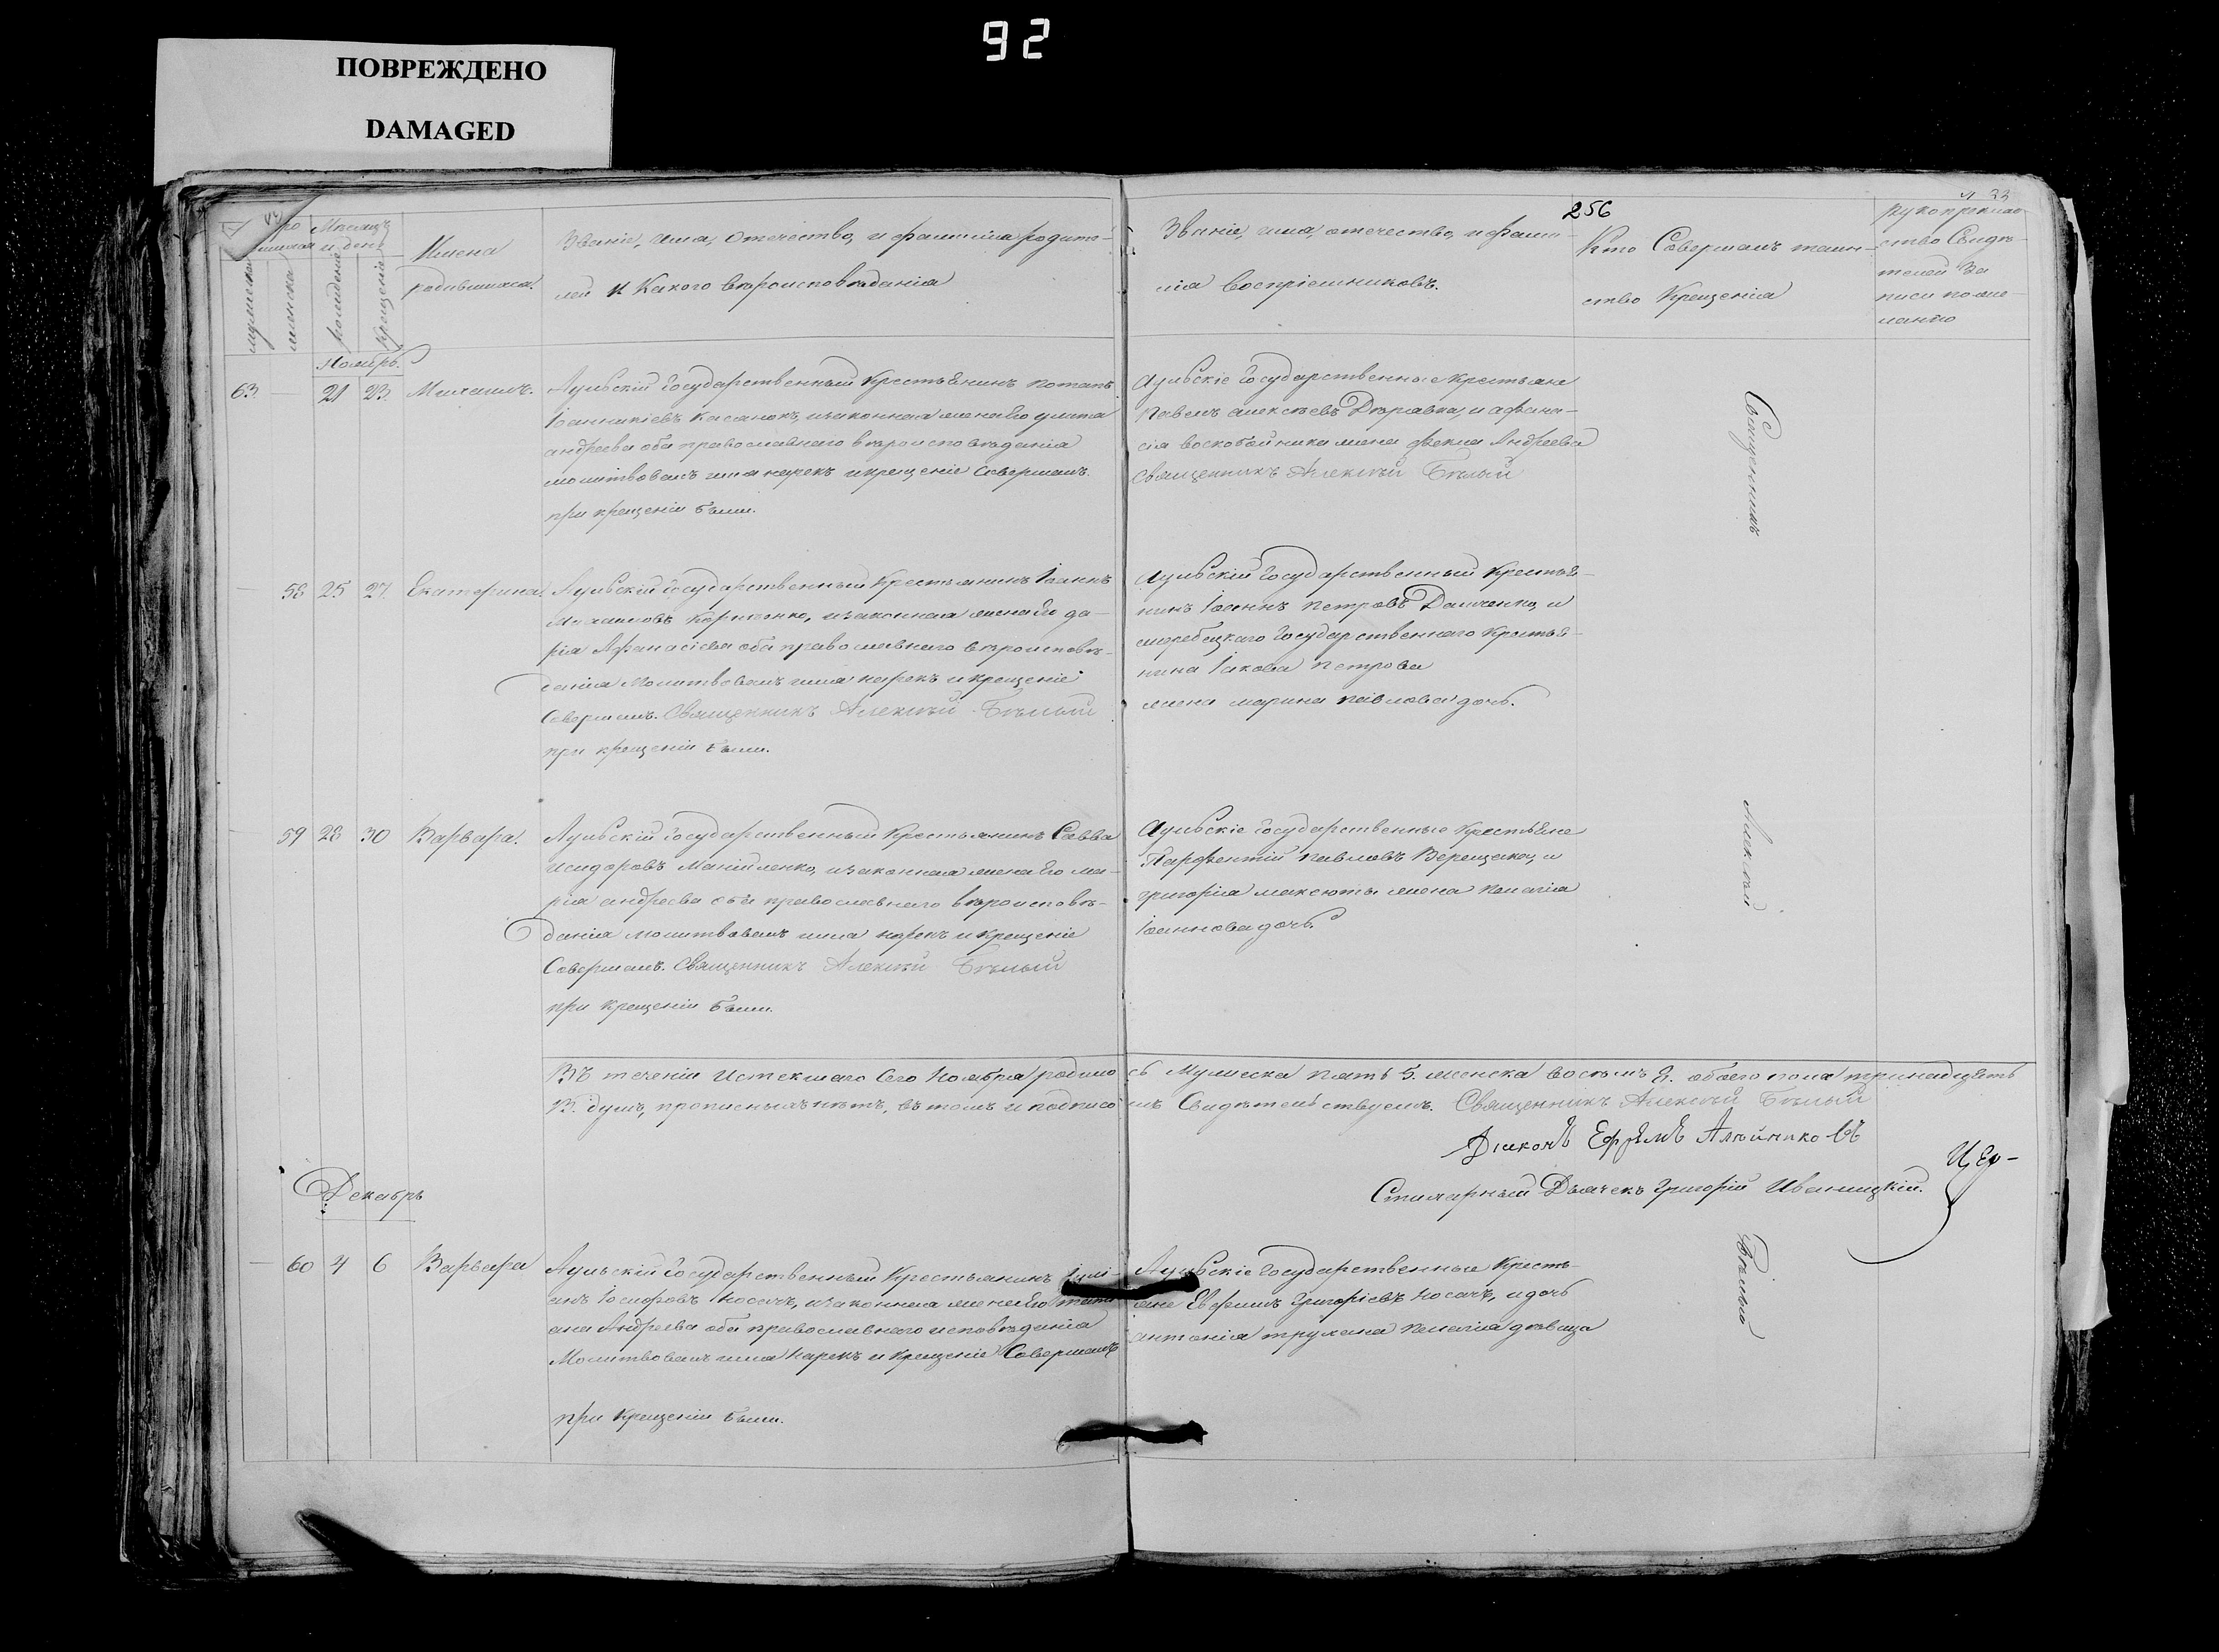 92
ПОВРЕЖДЕНО
DAMAGED
256
33
Мѣсяцъ
и день
мужеска
женска
рожденіе
крещеніе
Имена
родившихся.
Званіе, имя, отечество, и фамилія родите-
лей и Какого вѣроисповѣданія
Званіе, имя, отечество, и фами-
лія воспріемниковъ.
Кто Совершалъ таин-
ство Крещенія
Рукоприклад
ство Свидѣ-
телей За
писи по же-
ланію
Ноябрь.
63 — 21 23 Михаилъ.
Аульскій Государственный Крестьянинъ Потапъ
Іоанникіевъ Касанокъ, и законная жена Его улита
андреева оба православнаго вѣроисповѣданія
молитвовалъ имя нарекъ и крещеніе Совершалъ.
при крещеніи были.
Аульскіе Государственные Крестьяне
Павелъ алексѣевъ Дѣравка, и афана-
сія воскобойника жена фекла Андреева
Священникъ Алексѣй Бѣлый
— 58 25 27 Екатерина.
Аульскій Государственный Крестьянинъ Іоаннъ
Михаиловъ Корніенко, и законная жена Его да-
рія Афанасіева оба православнаго вѣроисповѣ-
данія Молитвовалъ имя нарекъ и крещеніе
Совершалъ. Священникъ Алексѣй Бѣлый
при крещеніи были.
Аульскій Государственный Крестья-
нинъ Іоаннъ Петровъ Данченко, и
жеребецкаго Государственнаго Крестья-
нина Іакова Петрова
жена марина павлова дочь.
— 59 28 30 Варвара.
Аульскій Государственный Крестьянинъ Савва
Исидоровъ Маніиленко, и законная жена Его ма-
рія андреева оба православнаго вѣроисповѣ-
данія молитвовалъ имя нарекъ и Крещеніе
Совершалъ. Священникъ Алексѣй Бѣлый
при Крещеніи были.
Аульскіе Государственные Крестьяне
Парфентій павловъ Верещака, и
григорія максюты жена Пелагія
Іоаннова дочь.
Въ теченіи Истекшаго Сего Ноября родилось Мужеска пять 5. женска восемь 8. обоего пола тринадцять
13. душъ, прописныхъ нѣтъ, въ томъ и подписомъ Свидѣтельствуемъ. Священникъ Алексѣй Бѣлый
Діаконъ Ефремъ Алейниковъ
Стихарный Дьячекъ Григорій Иваницкій.
Цер-
Декабрь
— 60 4 6 Варвара
Аульскій Государственный Крестьянинъ Іулі-
анъ Іосифовъ Носачъ, и законная жена Его тати
ана Андреева оба православнаго исповѣданія
Молитвовалъ имя Нарекъ и Крещеніе Совершалъ
при Крещеніи были.
Аульскіе Государственные Кресть-
яне Евфимъ Григоріевъ Носачъ, и дочь
антонія трухана Пелагія дѣвица
Священникъ
Алексѣй
Бѣлый